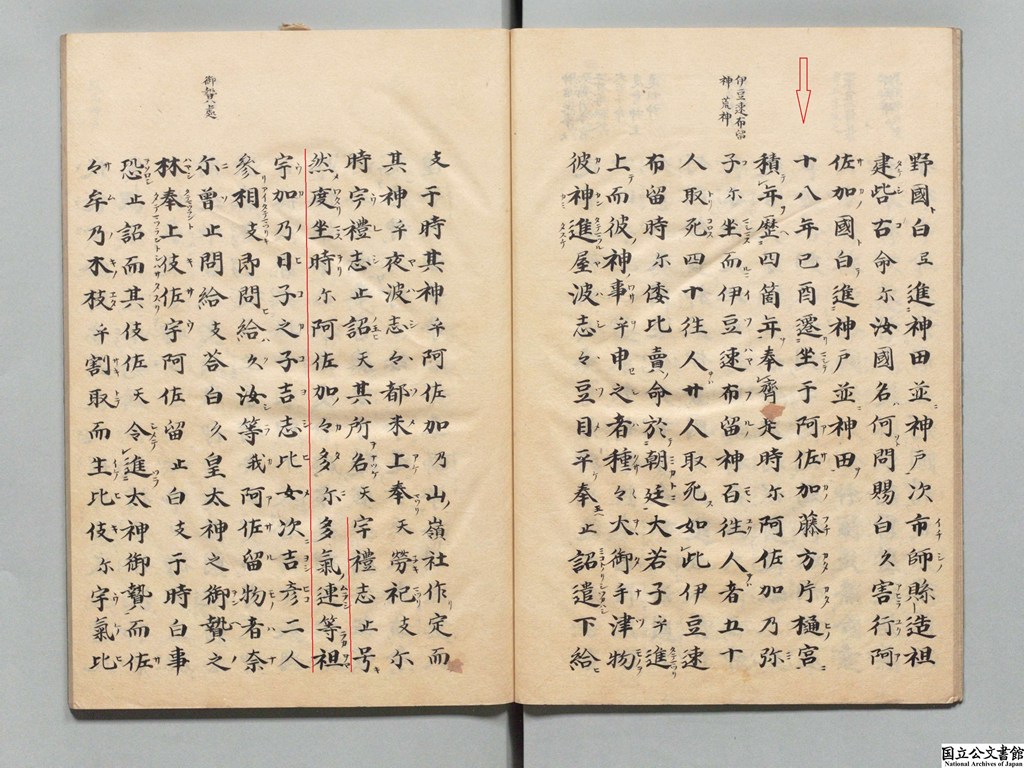 伊豆速布留
神荒神
野國白𠮷進神田並神戸次市師縣造祖
建呰古命尓汝國名何問賜白久害行阿
佐加國止白進神戸並神田
十八年己酉遷坐于阿佐加藤方片樋宮
積年歴四箇年奉齊是時尓阿佐加乃弥
子尓坐而伊豆速布留神百往人者五十
人取死四十往人廿人取死如此伊豆速
布留時尓倭比賣命於朝廷大若子乎進
上而彼神事乎申之者種々大御手津物
彼神進屋波志々豆目平奉止詔遣下給
御贄處
支于時其神乎阿佐加乃山嶺社作定而
其神乎夜波志々都米上奉天勞祀支尓
時宇禮志止詔天其所名天宇禮志止号
然度坐時尓阿佐加々多尓多氣連等祖
宇加乃日子之子吉志比女次吉彦二人
參相支即問給久汝等我阿佐留物者奈
尓曽止問給支荅白久皇太神之御贄之
林奉上伎佐宇阿佐留止白支于時白事
恐止詔而其伎佐天令進太神御贄而佐
々牟乃木枝乎割取而生比伎尓宇氣比
国立公文書館
National Archives of Japan